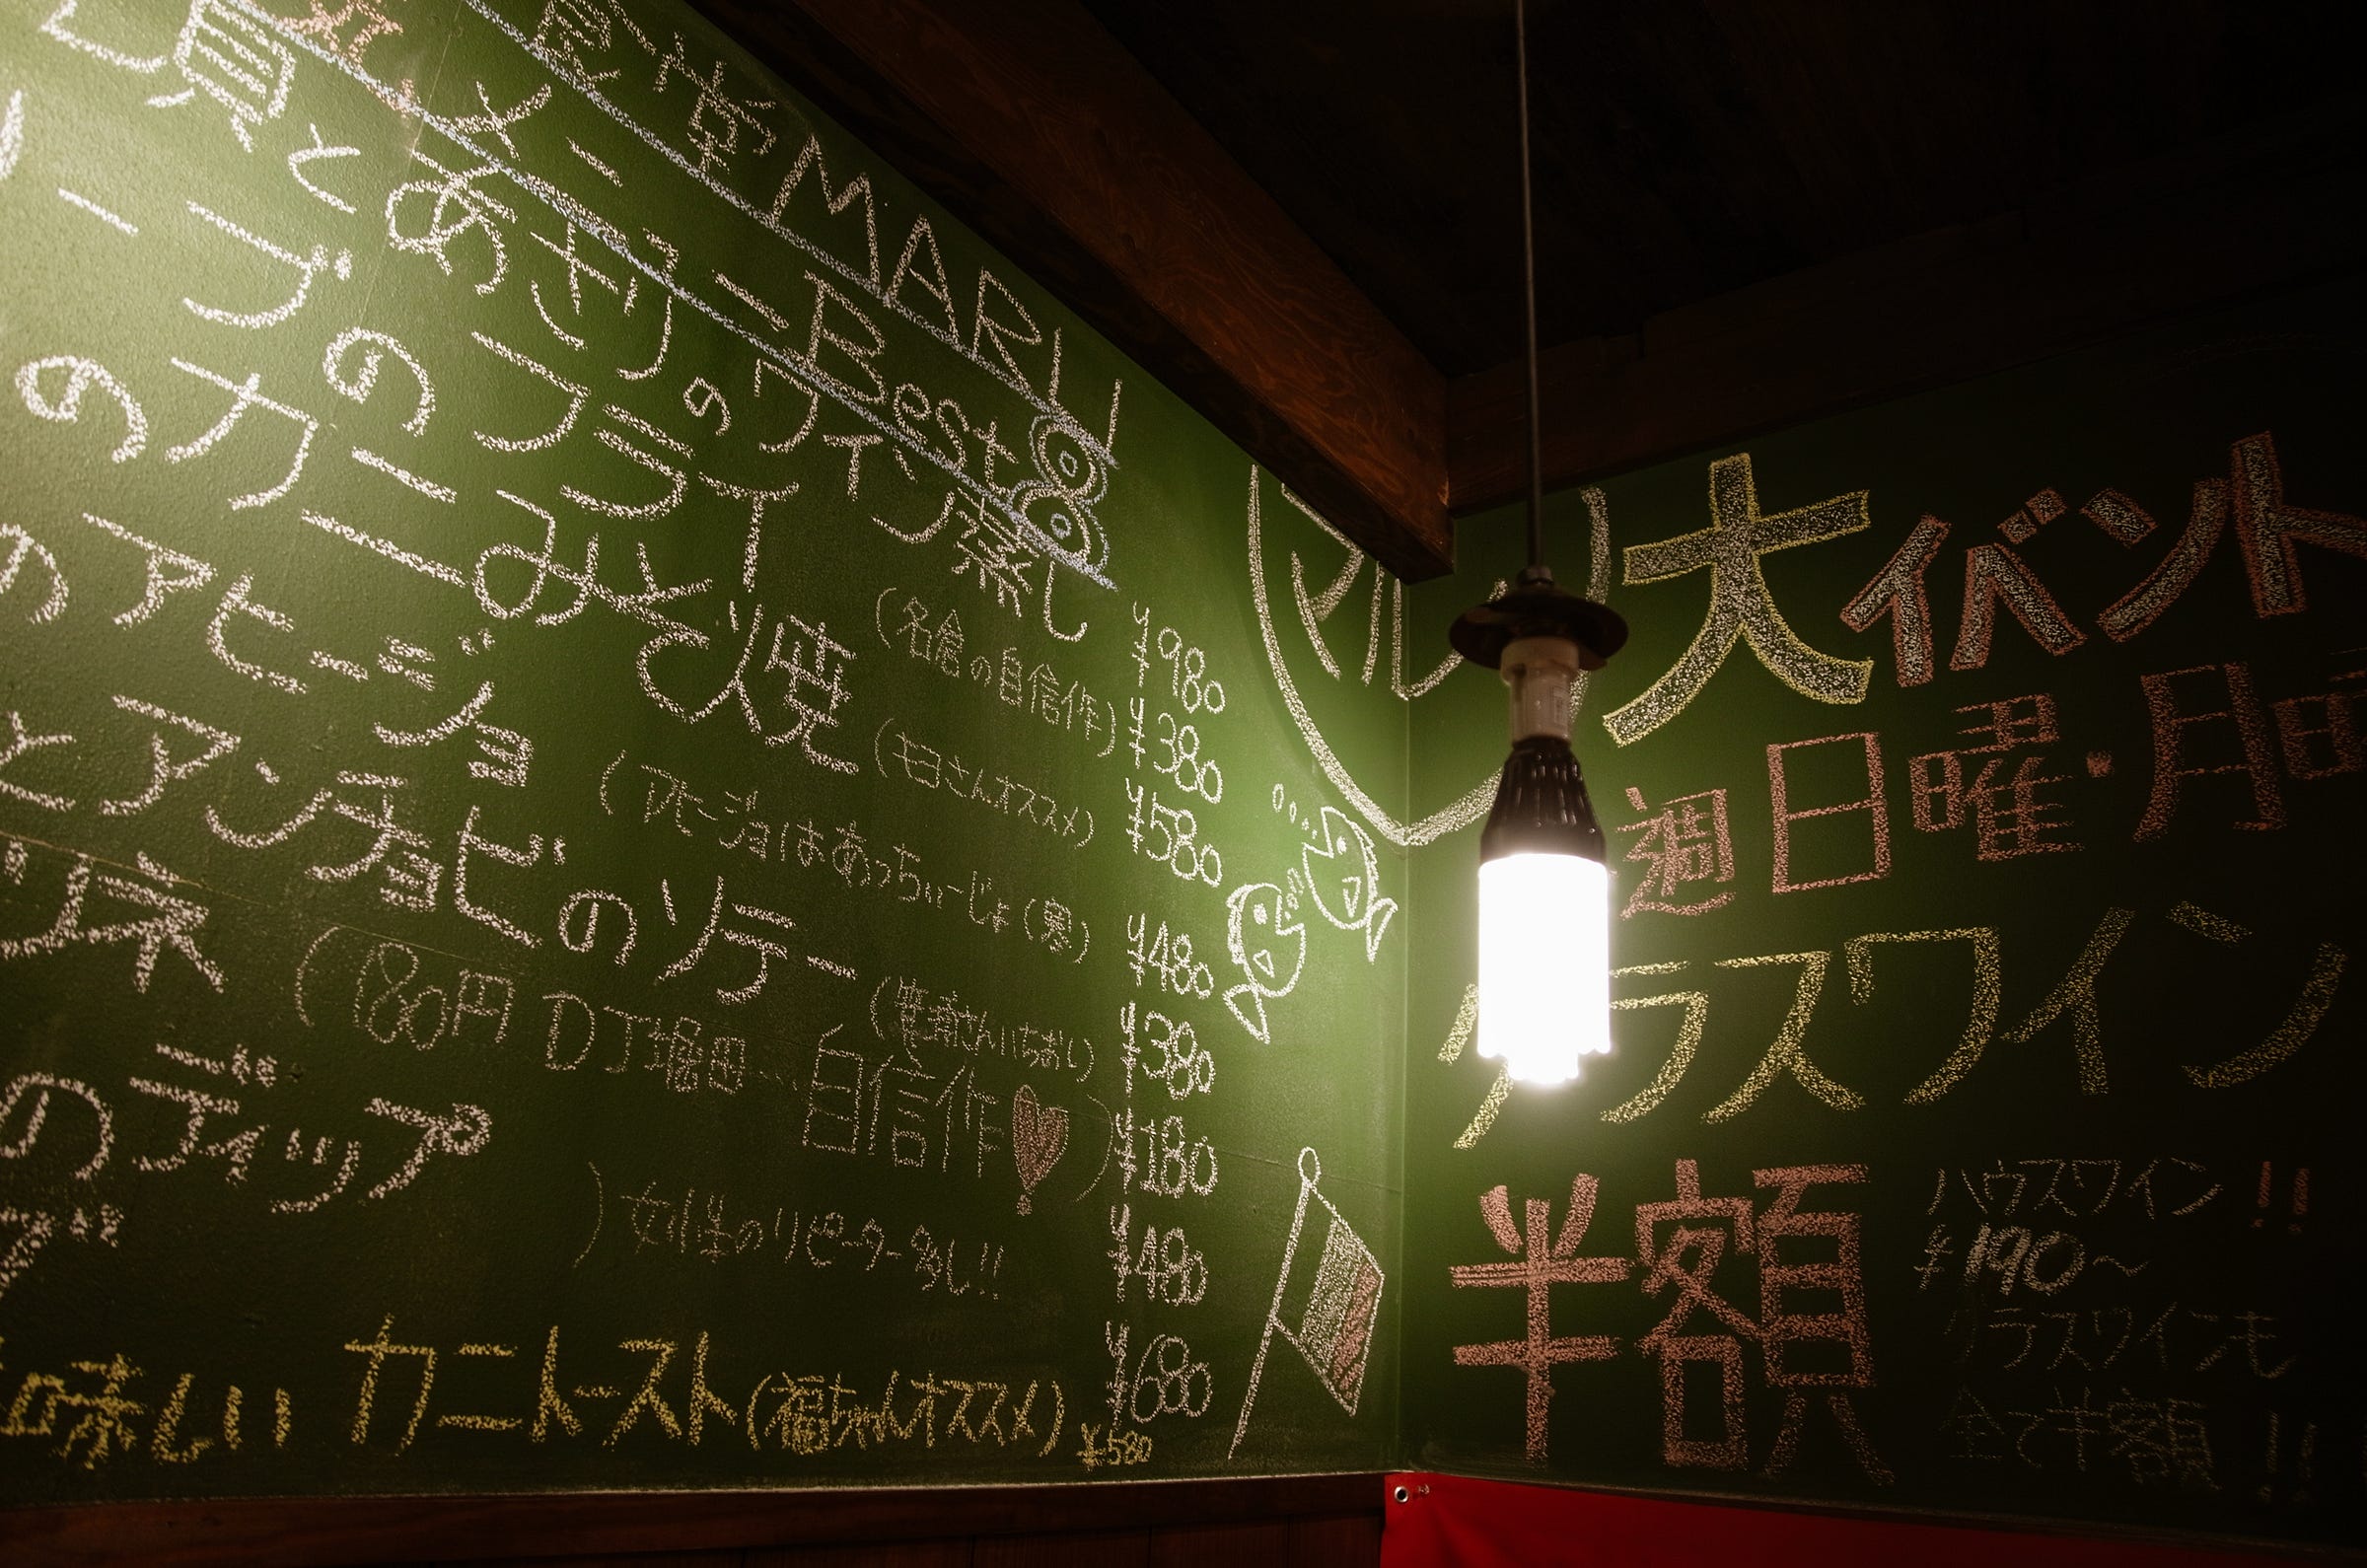 食堂MARU
メニューBest8
貝とあさりのワイン蒸し ¥980
ーブのフライ (名倉の自信作) ¥380
のカニみそ焼 (モヨさんオススメ) ¥580
のアヒージョ (アヒージョはあっちぃーじょ(寒) ¥480
とアンチョビのソテー (さんいちおし) ¥380
(180円 DJ堀田 自信作♥) ¥180
のディップ )女性のリピーター多し!! ¥480
¥680
味しい カニトースト(福ちゃんオススメ) ¥580
マル
大イベント
週日曜・月曜
グラスワイン
半額
ハウスワイン!!
¥190〜
グラスワインも
全て半額!!